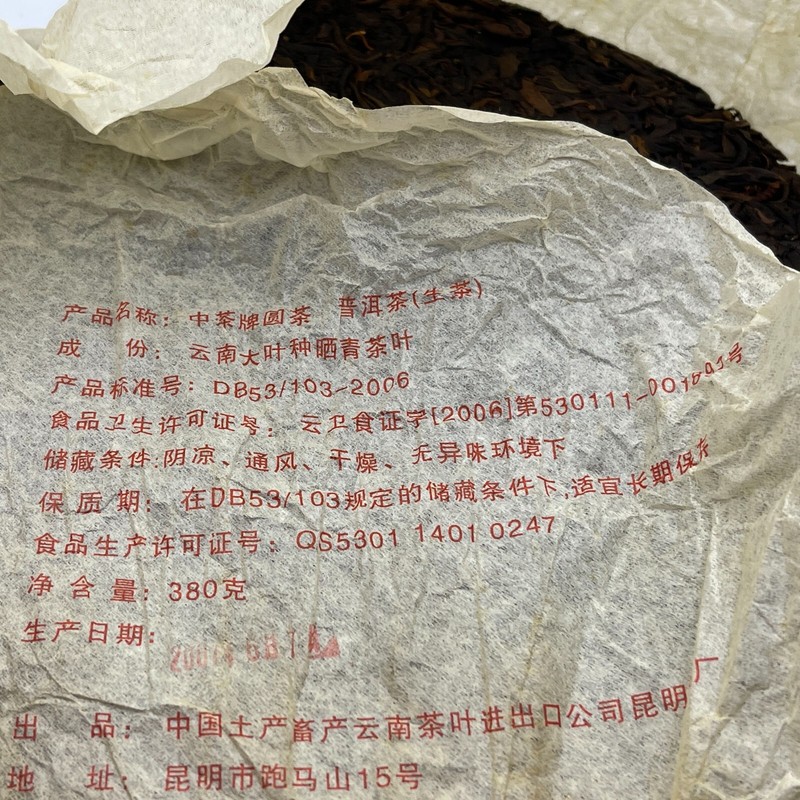 产品名称：中茶牌圆茶 普洱茶(生茶)
成 份：云南大叶种晒青茶叶
产品标准号：DB53/103-2006
食品卫生许可证号：云卫食证字[2006]第530111-
储藏条件:阴凉、通风、干燥、无异味环境下
保质期：在DB53/103规定的储藏条件下,适宜长期保存
食品生产许可证号：QS5301 1401 0247
净含量：380克
生产日期：
出 品：中国土产畜产云南茶叶进出口公司昆明厂
地 址：昆明市跑马山15号